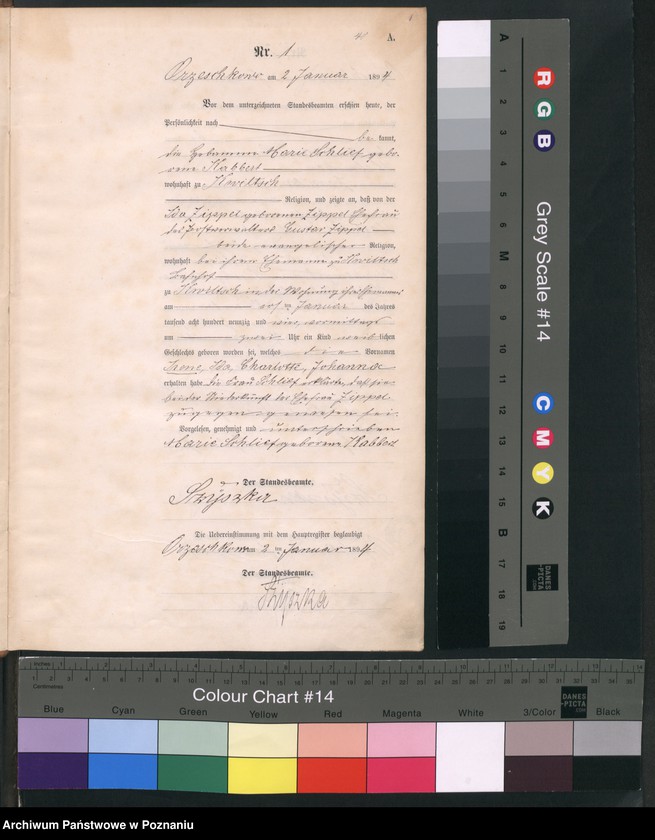 1
41
A.
Nr. 1
Orzeschkowo am 2 Januar 1894
Vor dem unterzeichneten Standesbeamten erschien heute, der
Persönlichkeit nach
be kannt,
die Hebamme Marie Schlief gebo-
rene Kabbert
wohnhaft zu Kwiltsch
Religion, und zeigte an, daß von der
Ida Zippel geborenen Zippel Ehefrau
des Forstverwalters Gustav Zippel
beide evangelischer Religion,
wohnhaft bei ihrem Ehemanne zu Kwiltsch
Bahnhof
zu Kwiltsch in der Wohnung ihres Ehemannes
am ersten Januar des Jahres
tausend acht hundert neunzig und vier, vormittags
um zwei Uhr ein Kind weib lichen
Geschlechts geboren worden sei, welches die Vornamen
Irene, Ida, Charlotte, Johanna
erhalten habe. die Frau Schlief erklärte, daß sie
bei der Niederkunft der Ehefrau Zippel
zugegen gewesen sei.
Vorgelesen, genehmigt und unterschrieben
Marie Schlief geborene Kabbert
Der Standesbeamte.
Szÿszka
Die Uebereinstimmung mit dem Hauptregister beglaubigt
Orzeschkowo am 2 ten Januar 1894
Der Standesbeamte.
Szÿszka
A 1 2 3 4 5 M 8 9 10 11 12 13 14 15 B 17 18 19
R G B
Grey Scale #14
C M Y K
DANES
-PICTA
.COM
Inches
Centimetres
Colour Chart #14
DANES
-PICTA
.COM
Blue Cyan Green Yellow Red Magenta White 3/Color Black
Archiwum Państwowe w Poznaniu